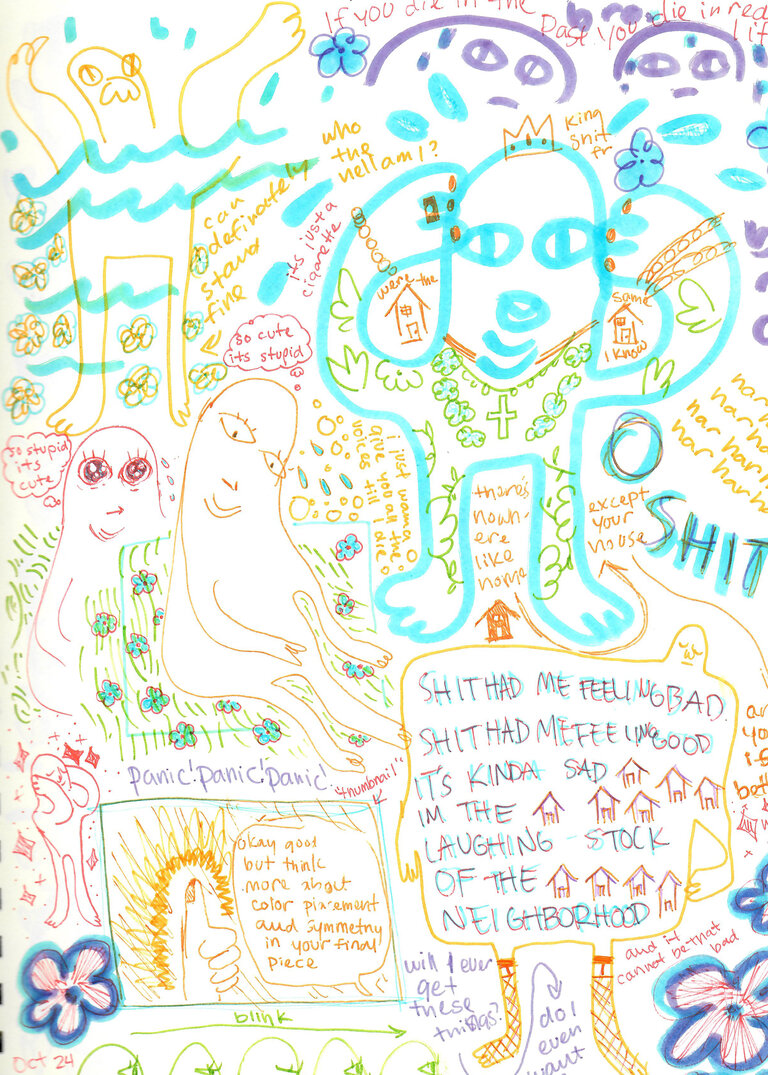 If you die in the
Past you
die in real
lif
bro
who
the
hell am I?
king
shit
fr
can
definately
stand
fine
its just a
cigarette
were the
same
I know
so cute
its stupid
so stupid
its
cute
i just wanna
give you all the
voices till
i die
nar
nar har
nar har ha
nar har ha
O
SHIT
there's
nowh-
ere
like
home
except
your
house
SHIT HAD ME FEELING BAD
SHIT HAD ME FEELING GOOD
IT'S KINDA SAD
IM THE
LAUGHING-STOCK
OF THE
NEIGHBORHOOD
panic! panic! panic!
"thumbnail"
okay good
but think
more about
color placement
and symmetry
in your final
piece
blink
Oct 24
will I ever
get
these
things?
do I
even
want
and it
cannot be that
bad